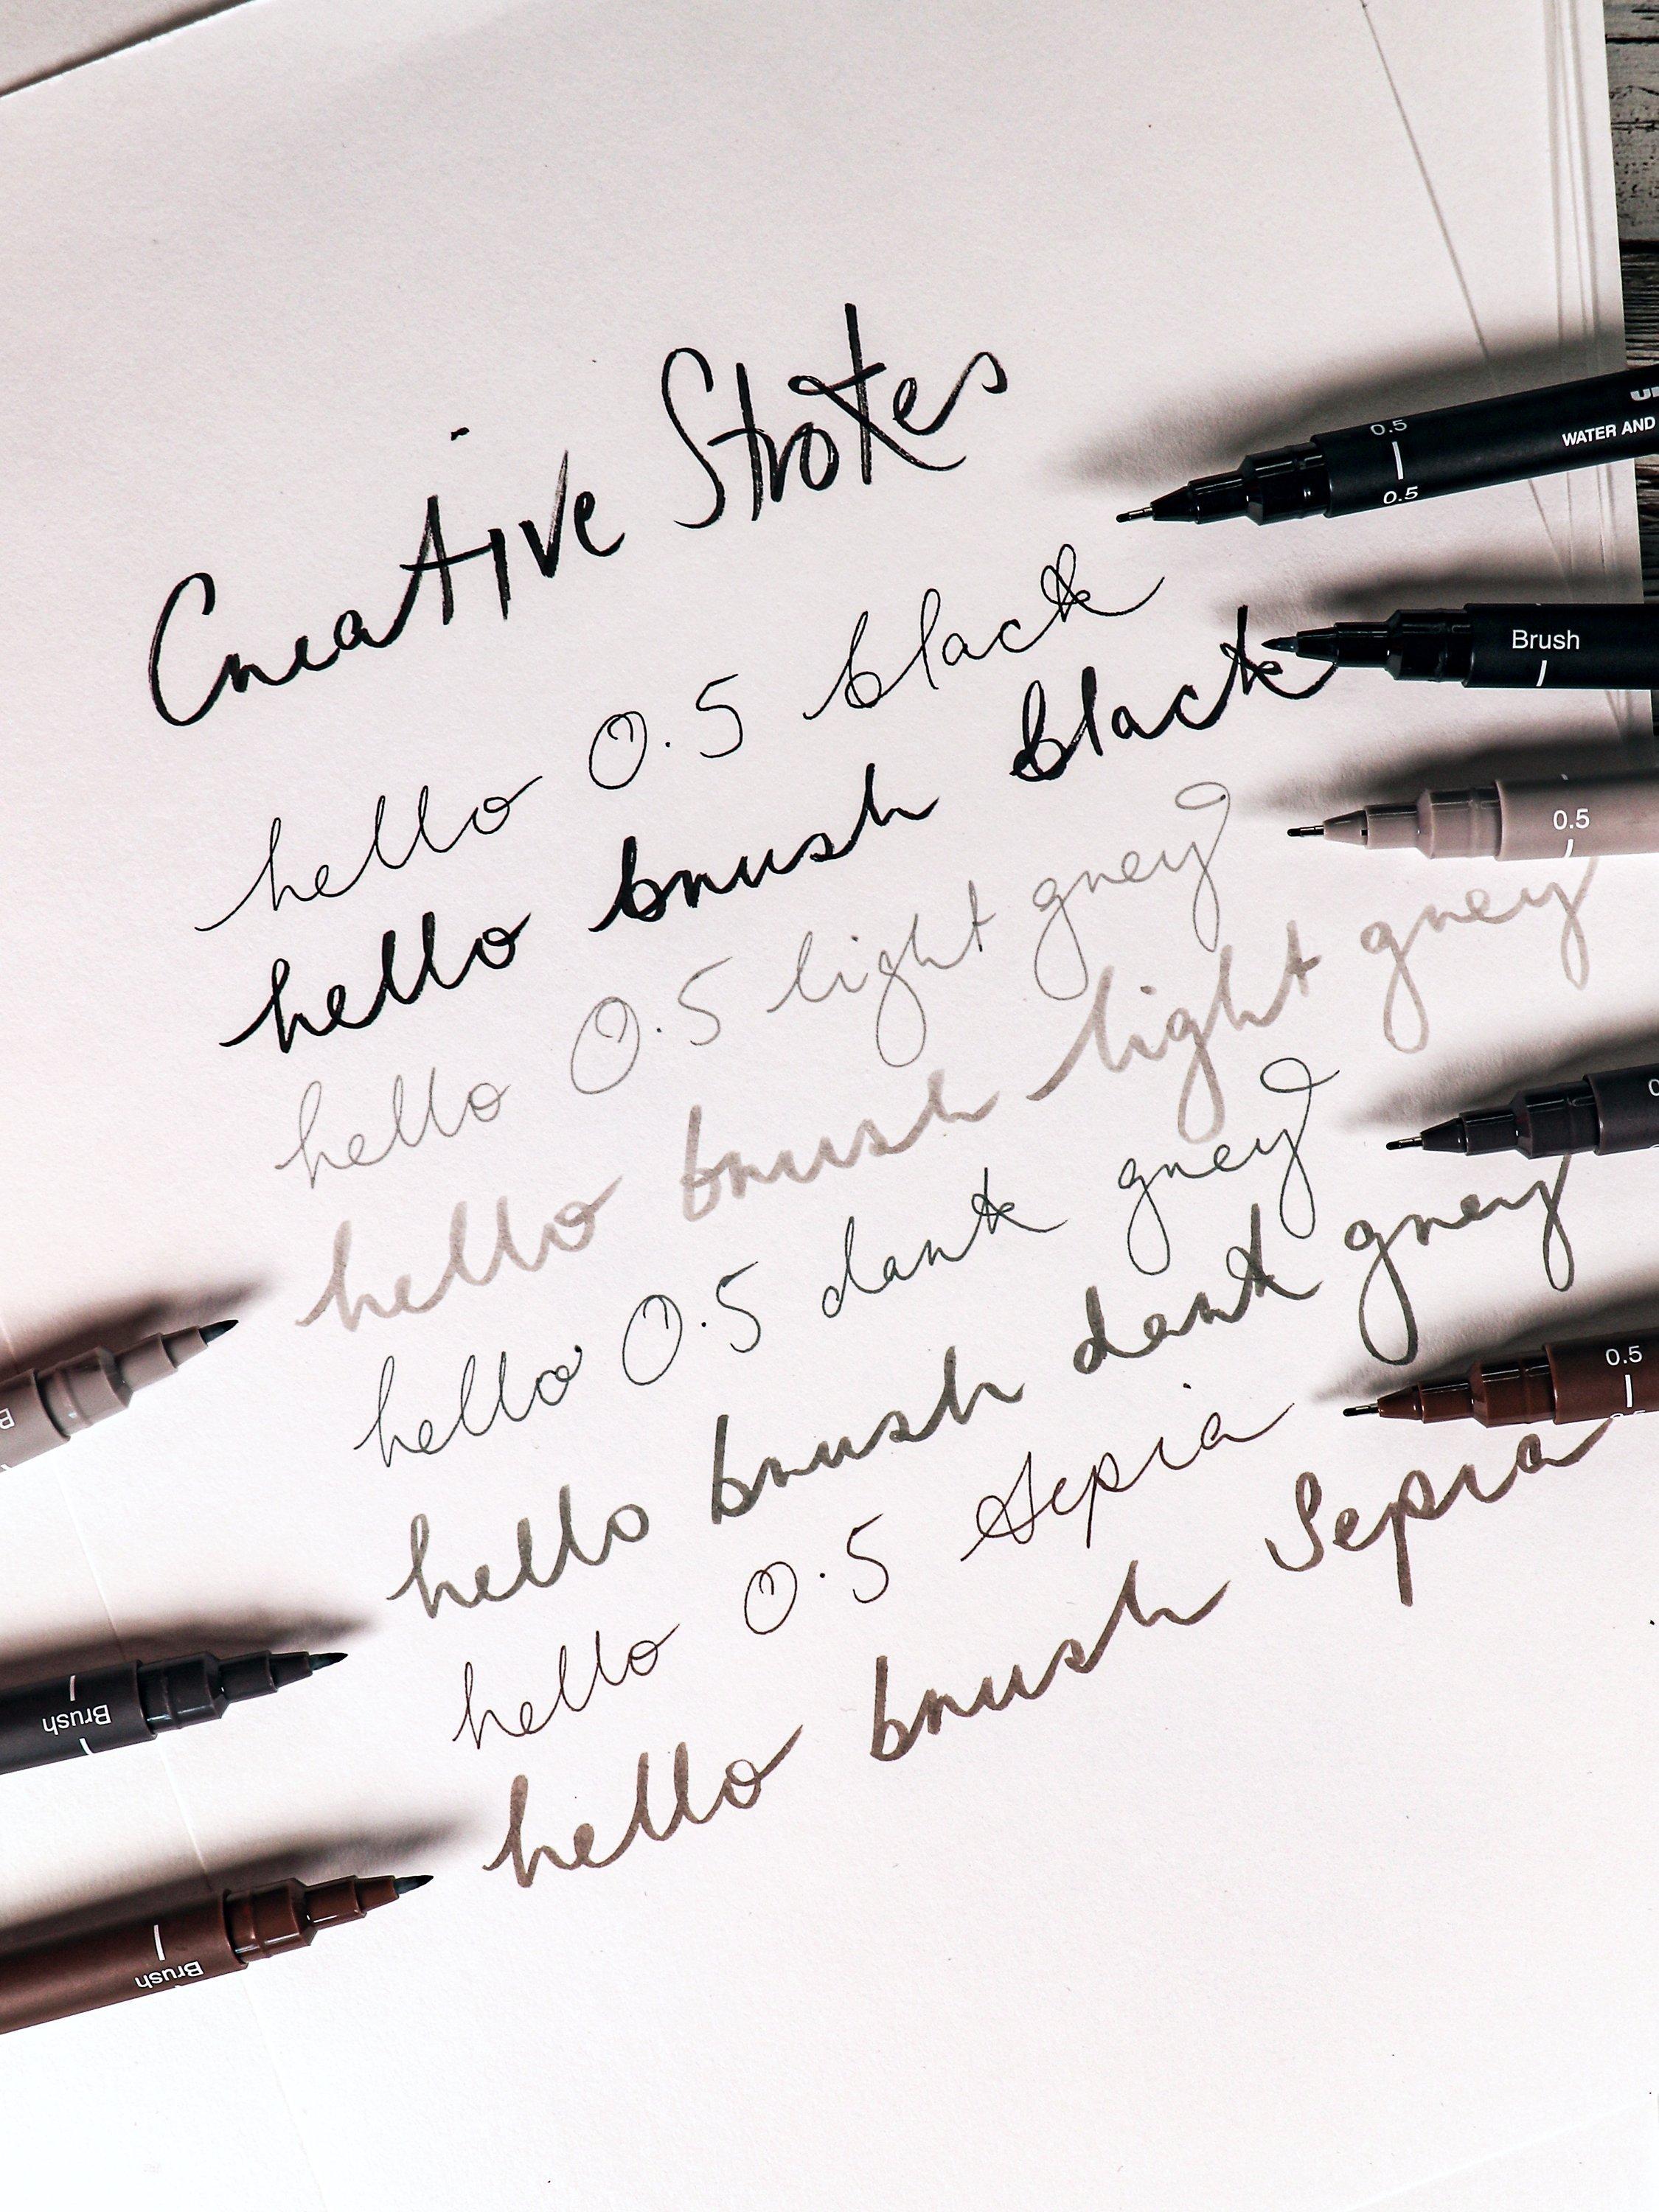 Creative Strokes
hello 0.5 black
hello brush black
hello 0.5 light grey
hello brush light grey
hello 0.5 dark grey
hello brush dark grey
hello 0.5 Sepia
hello brush Sepia
0.5
0.5
WATER AND
Brush
0.5
0.5
Brush
Brush